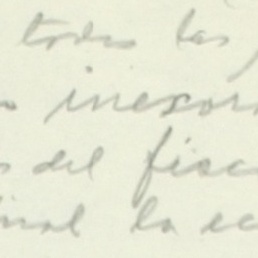 todos las
inexor
s del fisc
inal la ec